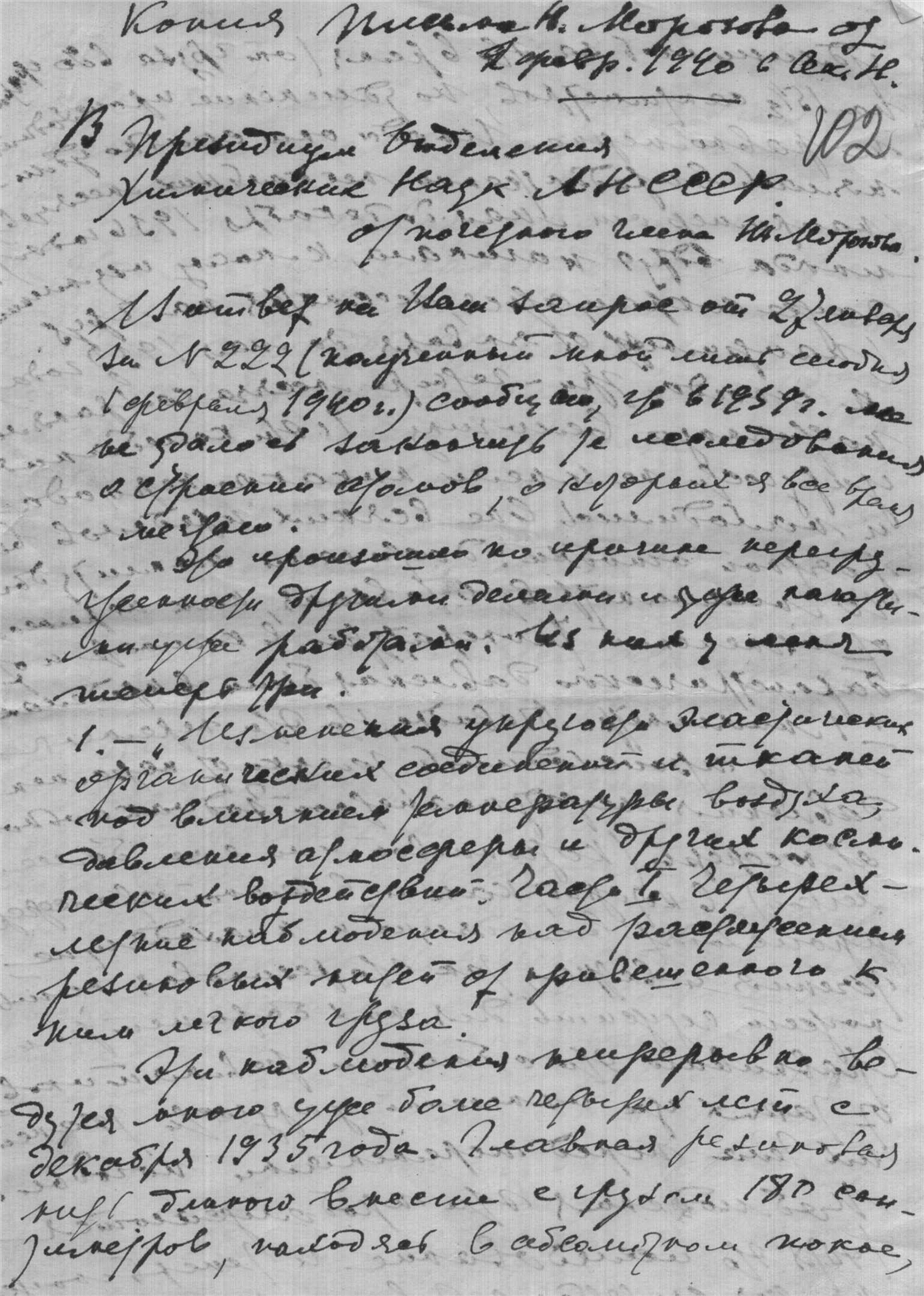 Копия письма Н. Морозова от
1 февр. 1940 в Ак. Н.
102
В Президиум Отделения
Химических Наук АН СССР.
от почетного члена Н. Морозова.
В ответ на Ваш запрос от 27 января
за N 222 (полученный мной лишь сегодня
1 февраля 1940 г.) сообщаю, что в 1939 г. мне
не удалось закончить те исследования
о строении атомов, о которых я все время
мечтаю.
Это произошло по причине перегру-
женности другими делами и уже
работами. Из них у меня
теперь три.
1. — „Изменения упругости эластических
органических соединений и тканей
под влиянием температуры воздуха,
давления атмосферы и других косми-
ческих воздействий. Часть I. Четырех-
летние наблюдения над растяжением
резиновых нитей от привешенного к
ним легкого груза.
Эти наблюдения непрерывно ве-
дутся мною уже более четырех лет с
декабря 1935 года. Главная резиновая
нить длиною вместе с грузом 180 сан-
тиметров, находясь в абсолютном покое,